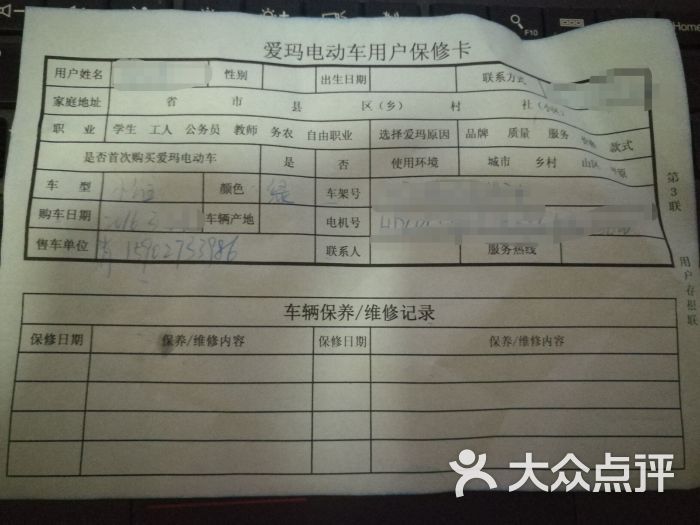 爱玛电动车用户保修卡
用户姓名 性别 出生日期 联系方式
家庭地址 省 市 县 区(乡) 村 社
职 业 学生 工人 公务员 教师 务农 自由职业 选择爱玛原因 品牌 质量 服务 价格 款式
是否首次购买爱玛电动车 是 否 使用环境 城市 乡村 山区
车 型 颜色 绿 车架号
购车日期 2016 3 车辆产地 电机号
售车单位 15902733986 联系人 服务热线
第3联
用户存根联
车辆保养/维修记录
保修日期 保养/维修内容 保修日期 保养/维修内容
F10
Home
大众点评